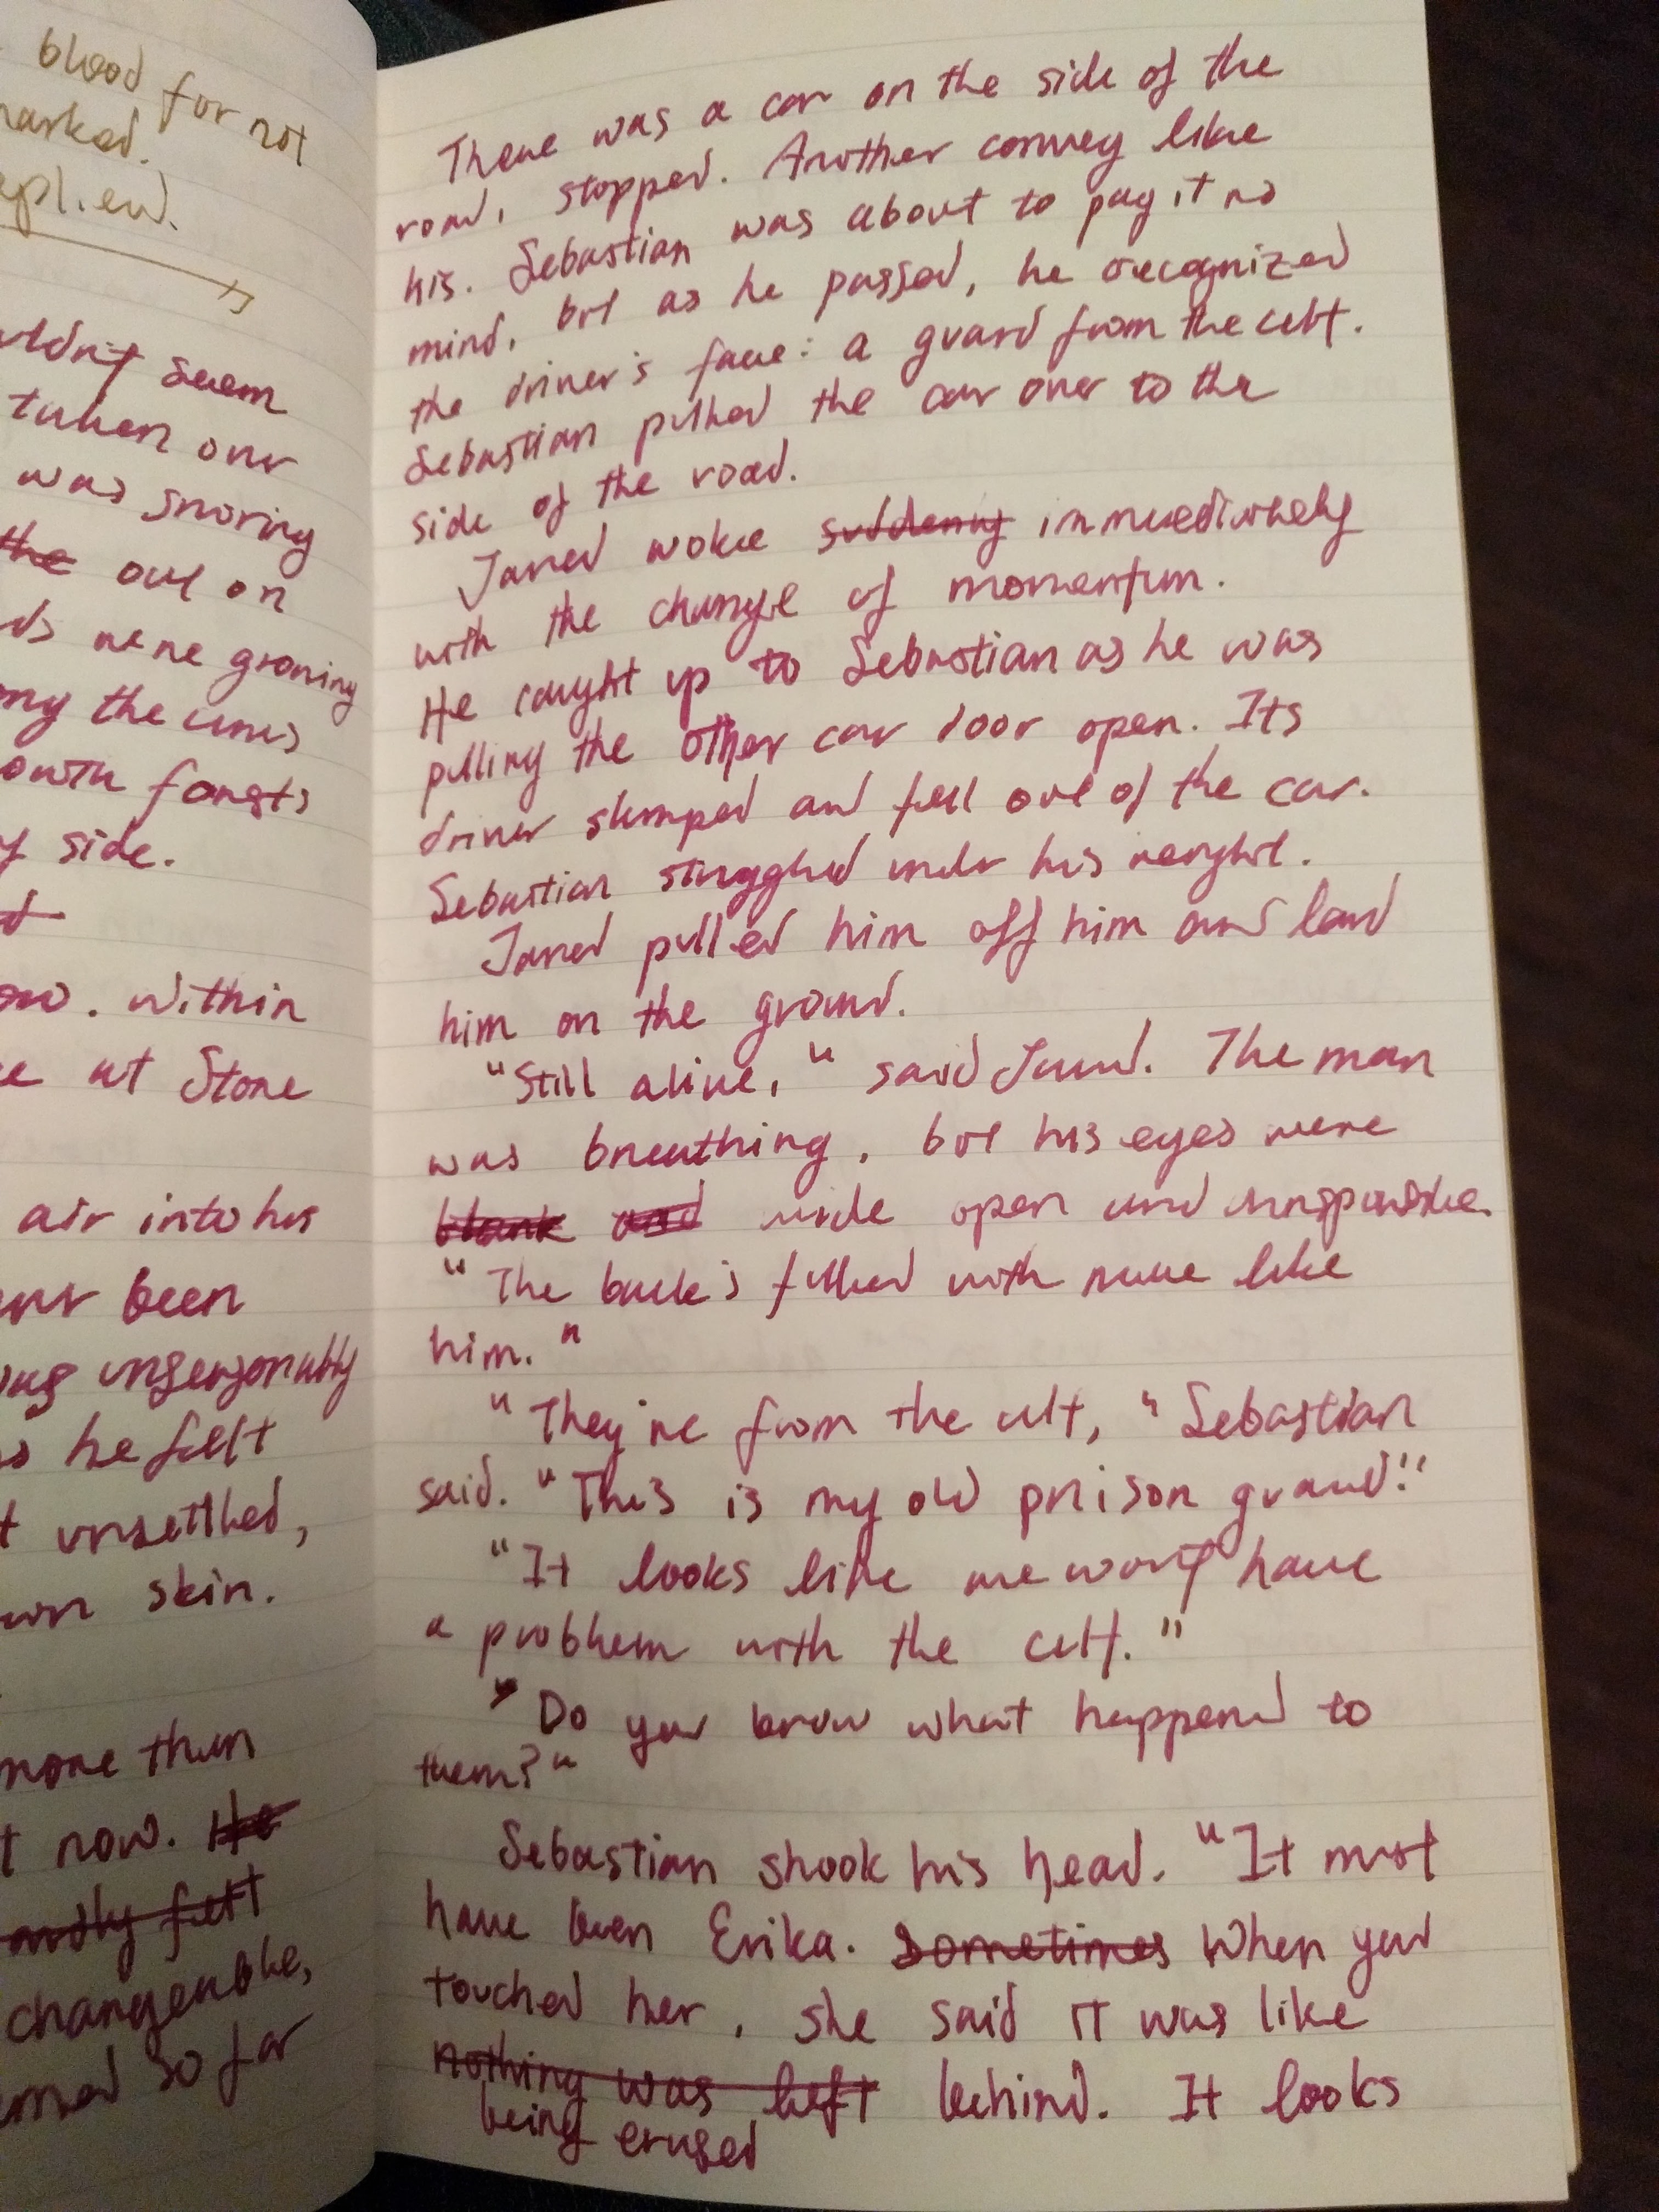 blood for not
marked.
replied.
couldn't seem
taken over
was snoring
the out on
ds were growing
ong the
owth forests
y side.
now. Within
e at Stone
air into his
ever been
unseasonably
he felt
t unsettled,
own skin.
more than
t now. He
ardly felt
changeable,
so far
There was a car on the side of the
road, stopped. Another convey like
his. Sebastian was about to pay it no
mind, but as he passed, he recognized
the driver's face: a guard from the cult.
Sebastian pulled the car over to the
side of the road.
Jared woke suddenly immediately
with the change of momentum.
He caught up to Sebastian as he was
pulling the other car door open. Its
driver slumped and fell out of the car.
Sebastian struggled under his weight.
Jared pulled him off him and laid
him on the ground.
"Still alive," said Jared. The man
was breathing, but his eyes were
blank and wide open and unresponsive.
"The back's filled with more like
him."
"They're from the cult," Sebastian
said. "This is my old prison guard."
"It looks like we won't have
a problem with the cult."
"Do you know what happened to
them?"
Sebastian shook his head. "It must
have been Erika. Sometimes When you
touched her, she said it was like
nothing was left behind. It looks
being erased